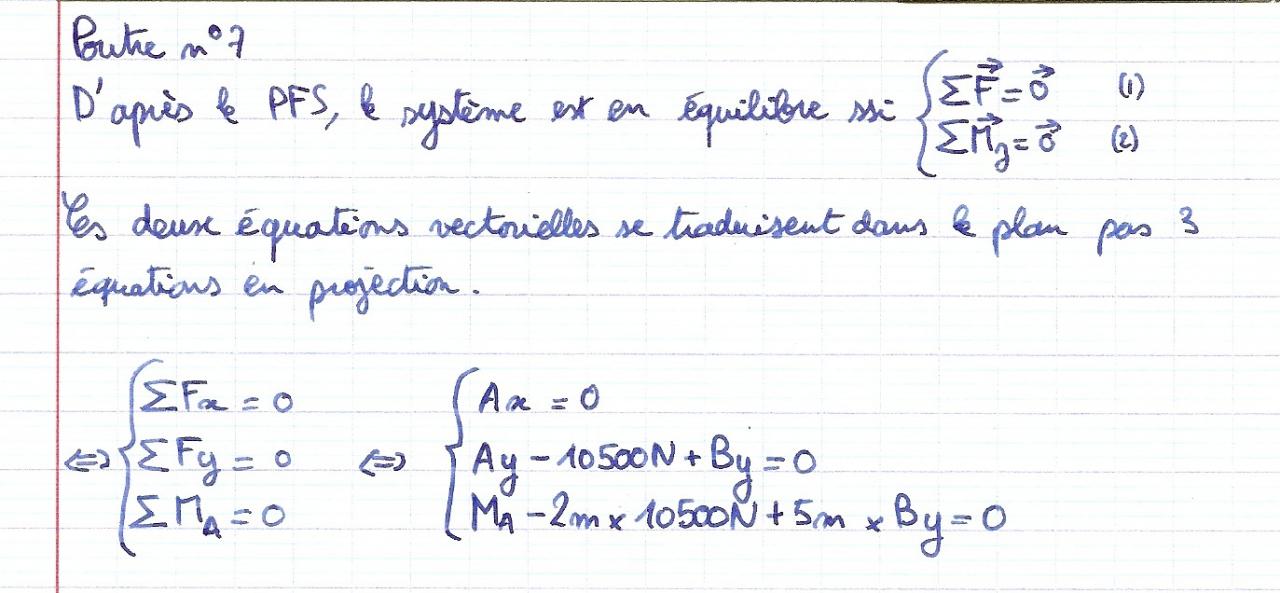 Poutre n°7
D'après le PFS, le système est en équilibre ssi { ΣF⃗ = 0⃗ (1)
ΣM⃗_z = 0⃗ (2)
Ces deux équations vectorielles se traduisent dans le plan pas 3
équations en projection.
⇔ { ΣFx = 0
ΣFy = 0
ΣM_A = 0
⇔ { Ax = 0
Ay - 10500N + By = 0
M_A - 2m × 10500N + 5m × By = 0